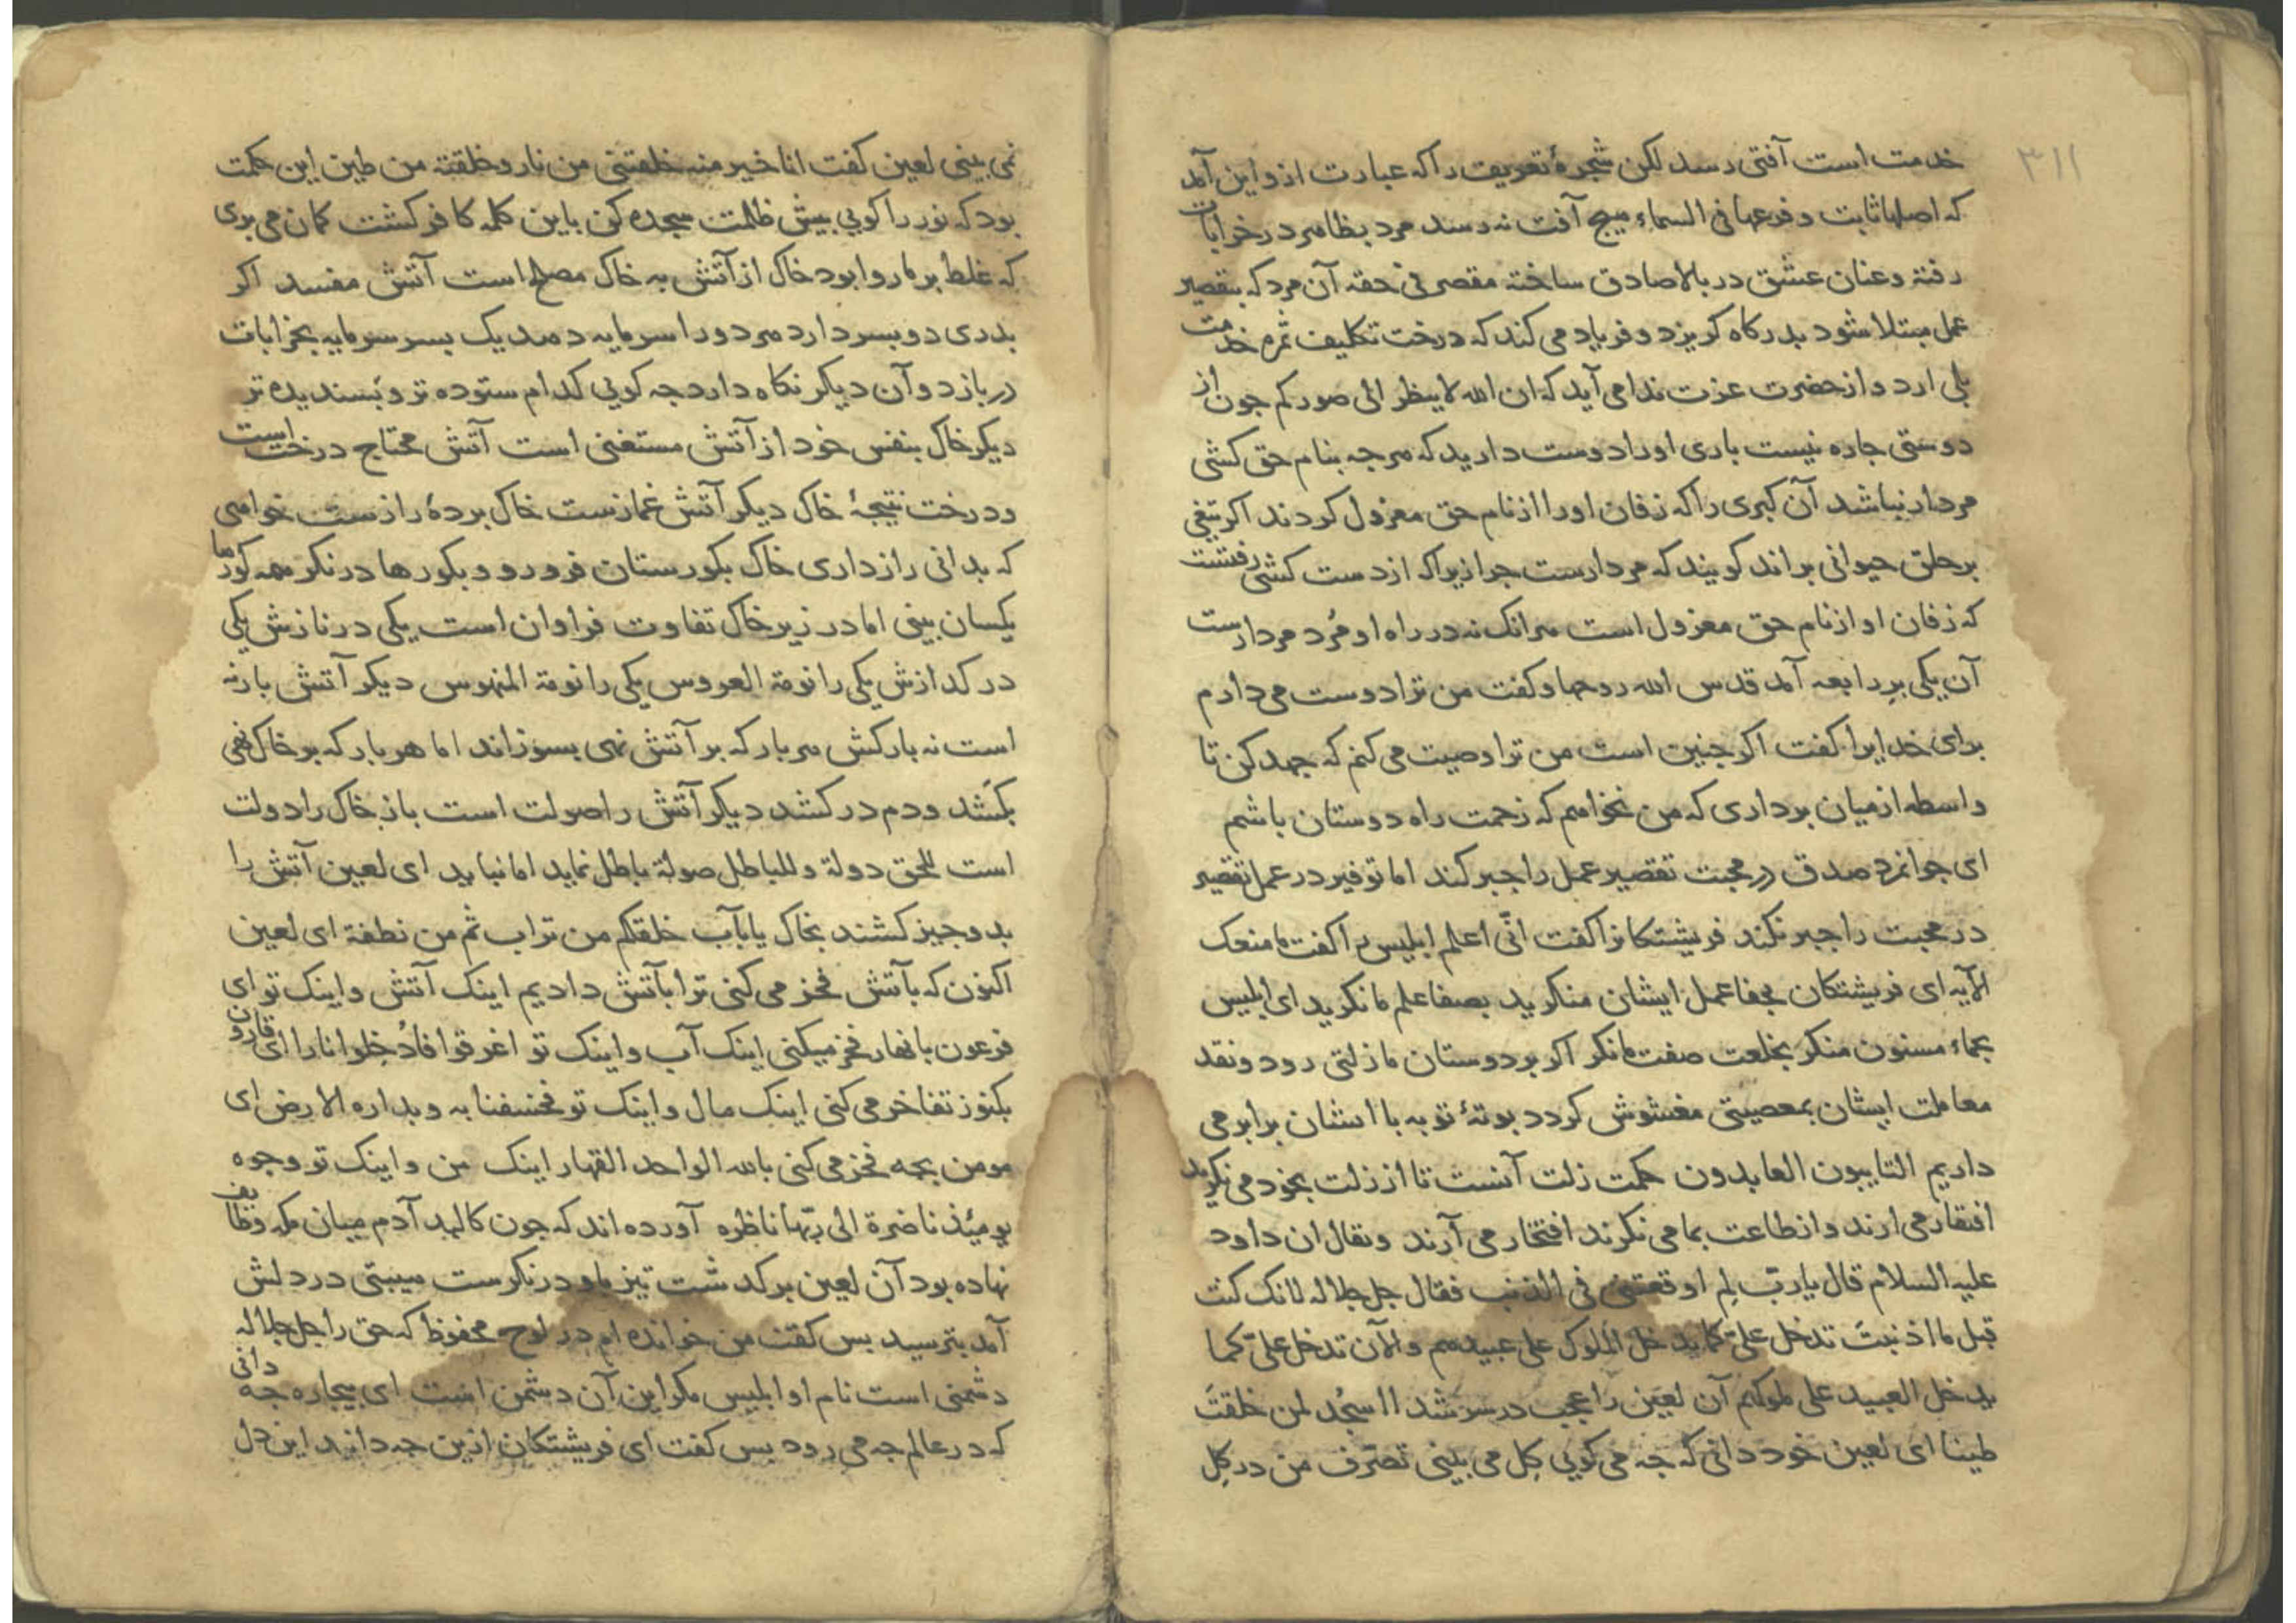 ۳۱۱
خدمت است آفتی رسد لکن شجرۀ تعریف را که عبارت ازو این آمد
که اصلها ثابت و فرعها فی السماء هیچ آفت نه رسد مرد بظاهر در خرابات
رفتة و عنان عشق در بالا صادق ساختة مقصر فی حقه آن مرد که بتقصیر
عمل مبتلا شود بدرکاه کریزد و فریاد می کند که درخت تکلیف ثمره خدمت
بلی ارد و از حضرت عزت ندا می آید که ان الله لا ینظر الی صورکم جون از
دوستی جاره نیست باری اورا دوست دارید که هرجه بنام حق کشی
مردار نباشد آن کبری را که زفان اورا از نام حق معزول کردند اکر تیغی
بر حلق حیوانی براند کویند که مردارست جرا زیراکه از دست کشی رفتست
که زفان او از نام حق معزول است هرانک نه در راه او مُرد مردارست
آن یکی برِ رابعه آمد قدس الله روحها و کفت من ترا دوست می دارم
برای خدایرا کفت اکر جنین است من ترا وصیت می کنم که جهد کن تا
واسطه از میان برداری که من نخواهم که زحمت راه دوستان باشم
ای جوانمرد صدق در محبت تقصیر عمل را جبر کند اما توفیر در عمل تقصیر
در محبت را جبر نکند فریشتکانرا کفت انّی اعلم ابلیس را کفت ما منعک
الآیه ای فریشتکان بجفا عمل ایشان منکرید بصفا علم ما نکرید ای ابلیس
بحماء مسنون منکر بخلعت صفت ما نکر اکر بر دوستان ما زلتی رود و نقد
معاملت ایشان بمعصیتی مغشوش کردد بوتۀ توبه با ایشان برابر می
داریم التایبون العابدون حکمت زلت آنست تا از زلت بخود می نکرید
افتقار می ارند و از طاعت بما می نکرند افتخار می آرند و نقال ان داود
علیه السلام قال یا ربّ لِم اوقعتنی فی الذنب فقال جل جلاله لانک کنت
قبل ما اذنبتَ تدخل علیّ کما یدخل الملوک علی عبیدهم والآن تدخل علیّ کما
یدخل العبید علی ملوکهم آن لعین را عجب در سر شد ااسجُد لمن خلقتَ
طینا ای لعین خود دانی که جه می کویی کِل می بینی تصرّف من در کِل
نمی بینی لعین کفت انا خیر منه خلقتنی من نار و خلقته من طین این حکمت
بود که نور را کویی بیش ظلمت سجده کن باین کلمه کافر کشت کمان می بری
که غلط بر ما روا بود خاک از آتش به خاک مصلح است آتش مفسد اکر
بدری دو بسر دارد هر دو را سرمایه دهد یک بسر سرمایه بخرابات
در بازد و آن دیکر نکاه دارد جه کویی کدام ستوده تر و بسندیده تر
دیکر خاک بنفس خود از آتش مستغنی است آتش محتاج درخت است
و درخت نتیجۀ خاک دیکر آتش غمازست خاک بردۀ رازست خواهی
که بدانی رازداری خاک بکورستان فرو رو و بکورها در نکر همه کورها
یکسان بینی اما در زیر خاک تفاوت فراوان است یکی در نازش یکی
در کدازش یکی را نومة العروس یکی را نومة المنهوس دیکر آتش بارنه
است نه بارکش هر بار که بر آتش نهی بسوزاند اما هر بار که بر خاک نهی
بکشد و دم در کشد دیکر آتش را صولت است باز خاک را دولت
است للحق دولة و للباطل صولة باطل نماید اما نباید ای لعین آتش را
بدو جیز کشند بخاک یا بآب خلقکم من تراب ثم من نطفة ای لعین
اکنون که بآتش فخر می کنی ترا بآتش دادیم اینک آتش و اینک تو ای
فرعون بانهار فخر میکنی اینک آب و اینک تو اغرقوا فادُخلوا نارا ای قارون
بکنوز تفاخر می کنی اینک مال و اینک تو فخسفنا به و بداره الارض ای
مومن بجه فخر می کنی بالله الواحد القهار اینک من و اینک تو وجوه
یومیٔذ ناضرة الی ربّها ناظره آورده اند که جون کالبد آدم میان مکه و طایف
نهاده بود آن لعین برکدشت تیز باو در نکرست هیبتی در دلش
آمد بترسید بس کفت من خوانده ام در لوح محفوظ که حق را جل جلاله
دشمنی است نام او ابلیس مکر این آن دشمن است ای بیجاره جه دانی
که در عالم جه می رود بس کفت ای فریشتکان ازین جه داند این دل